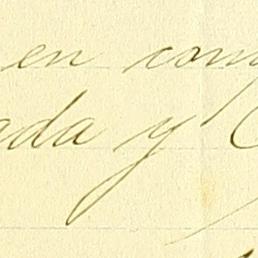 en com
ada y